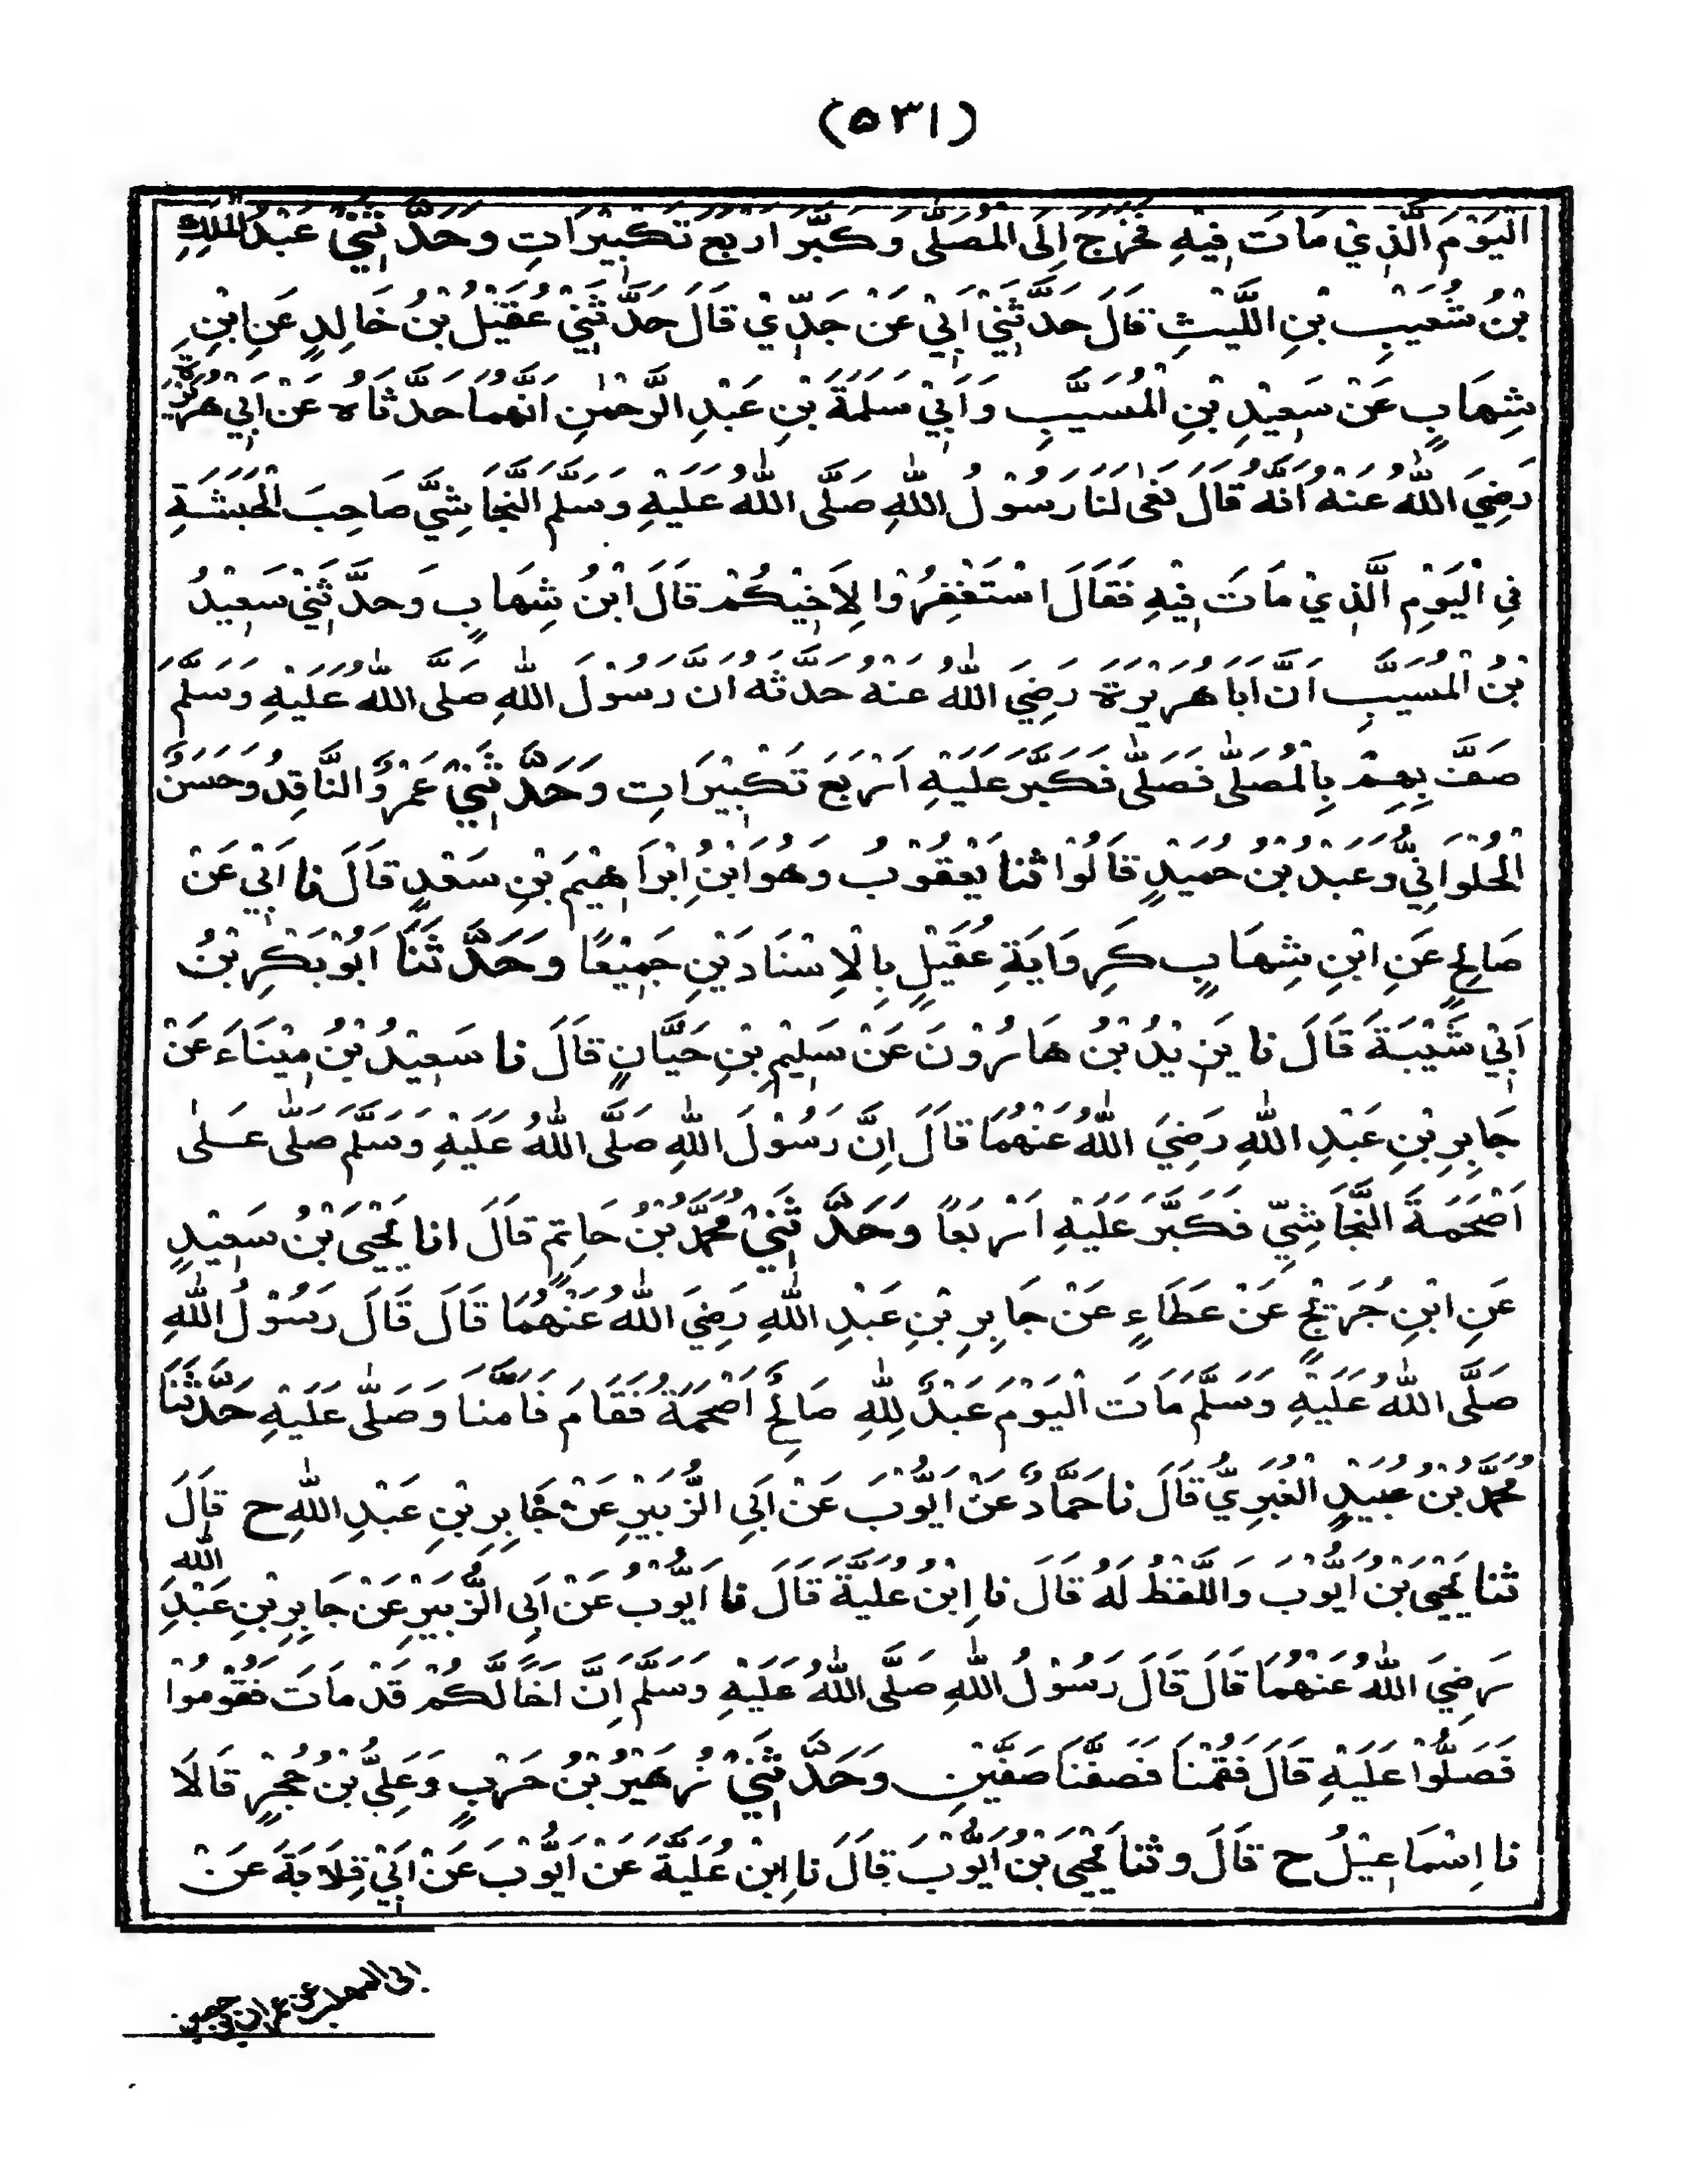 (٥٣١)
اَلْيَوْمَ الَّذِيْ مَاتَ فِيْهِ فَخَرَجَ اِلَى الْمُصَلّٰى وَكَبَّرَ اَرْبَعَ تَكْبِيْرَاتٍ وَحَدَّثَنِيْ عَبْدُ الْمَلِكِ
بْنُ شُعَيْبِ بْنِ اللَّيْثِ قَالَ حَدَّثَنِيْ اَبِيْ عَنْ جَدِّيْ قَالَ حَدَّثَنِيْ عُقَيْلُ بْنُ خَالِدٍ عَنِ ابْنِ
شِهَابٍ عَنْ سَعِيْدِ بْنِ الْمُسَيَّبِ وَاَبِيْ سَلَمَةَ بْنِ عَبْدِ الرَّحْمٰنِ اَنَّهُمَا حَدَّثَاهُ عَنْ اَبِيْ هُرَيْرَةَ
رَضِيَ اللّٰهُ عَنْهُ اَنَّهُ قَالَ نَعٰى لَنَا رَسُوْلُ اللّٰهِ صَلَّى اللّٰهُ عَلَيْهِ وَسَلَّمَ النَّجَاشِيَّ صَاحِبَ الْحَبَشَةِ
فِي الْيَوْمِ الَّذِيْ مَاتَ فِيْهِ فَقَالَ اسْتَغْفِرُوْا لِاَخِيْكُمْ قَالَ ابْنُ شِهَابٍ وَحَدَّثَنِيْ سَعِيْدُ
بْنُ الْمُسَيَّبِ اَنَّ اَبَا هُرَيْرَةَ رَضِيَ اللّٰهُ عَنْهُ حَدَّثَهُ اَنَّ رَسُوْلَ اللّٰهِ صَلَّى اللّٰهُ عَلَيْهِ وَسَلَّمَ
صَفَّ بِهِمْ بِالْمُصَلّٰى فَصَلّٰى فَكَبَّرَ عَلَيْهِ اَرْبَعَ تَكْبِيْرَاتٍ وَحَدَّثَنِيْ عَمْرٌو النَّاقِدُ وَحَسَنٌ
الْحُلْوَانِيُّ وَعَبْدُ بْنُ حُمَيْدٍ قَالُوْا ثَنَا يَعْقُوْبُ وَهُوَ ابْنُ اِبْرَاهِيْمَ بْنِ سَعْدٍ قَالَ نَا اَبِيْ عَنْ
صَالِحٍ عَنِ ابْنِ شِهَابٍ كَرِوَايَةِ عُقَيْلٍ بِالْاِسْنَادَيْنِ جَمِيْعًا وَحَدَّثَنَا اَبُوْ بَكْرِ بْنُ
اَبِيْ شَيْبَةَ قَالَ نَا يَزِيْدُ بْنُ هَارُوْنَ عَنْ سَلِيْمِ بْنِ حَيَّانٍ قَالَ نَا سَعِيْدُ بْنُ مِيْنَاءَ عَنْ
جَابِرِ بْنِ عَبْدِ اللّٰهِ رَضِيَ اللّٰهُ عَنْهُمَا قَالَ اِنَّ رَسُوْلَ اللّٰهِ صَلَّى اللّٰهُ عَلَيْهِ وَسَلَّمَ صَلّٰى عَلٰى
اَصْحَمَةَ النَّجَاشِيِّ فَكَبَّرَ عَلَيْهِ اَرْبَعًا وَحَدَّثَنِيْ مُحَمَّدُ بْنُ حَاتِمٍ قَالَ انا يَحْيَى بْنُ سَعِيْدٍ
عَنِ ابْنِ جُرَيْجٍ عَنْ عَطَاءٍ عَنْ جَابِرِ بْنِ عَبْدِ اللّٰهِ رَضِيَ اللّٰهُ عَنْهُمَا قَالَ قَالَ رَسُوْلُ اللّٰهِ
صَلَّى اللّٰهُ عَلَيْهِ وَسَلَّمَ مَاتَ الْيَوْمَ عَبْدٌ لِلّٰهِ صَالِحٌ اَصْحَمَةُ فَقَامَ فَاَمَّنَا وَصَلّٰى عَلَيْهِ حَدَّثَنَا
مُحَمَّدُ بْنُ عُبَيْدٍ الْغُبَرِيُّ قَالَ نَا حَمَّادٌ عَنْ اَيُّوْبَ عَنْ اَبِي الزُّبَيْرِ عَنْ جَابِرِ بْنِ عَبْدِ اللّٰهِ ح قَالَ
ثَنَا يَحْيَى بْنُ اَيُّوْبَ وَاللَّفْظُ لَهُ قَالَ نَا اِبْنُ عُلَيَّةَ قَالَ نَا اَيُّوْبُ عَنْ اَبِي الزُّبَيْرِ عَنْ جَابِرِ بْنِ عَبْدِ اللّٰهِ
رَضِيَ اللّٰهُ عَنْهُمَا قَالَ قَالَ رَسُوْلُ اللّٰهِ صَلَّى اللّٰهُ عَلَيْهِ وَسَلَّمَ اِنَّ اَخًا لَّكُمْ قَدْ مَاتَ فَقُوْمُوْا
فَصَلُّوْا عَلَيْهِ قَالَ فَقُمْنَا فَصَفَّنَا صَفَّيْنِ وَحَدَّثَنِيْ زُهَيْرُ بْنُ حَرْبٍ وَعَلِيُّ بْنُ حُجْرٍ قَالَا
نَا اِسْمَاعِيْلُ ح قَالَ وثَنَا يَحْيَى بْنُ اَيُّوْبَ قَالَ نَا اِبْنُ عُلَيَّةَ عَنْ اَيُّوْبَ عَنْ اَبِيْ قِلَابَةَ عَنْ
ابى المهلب عن عمران بن حصين